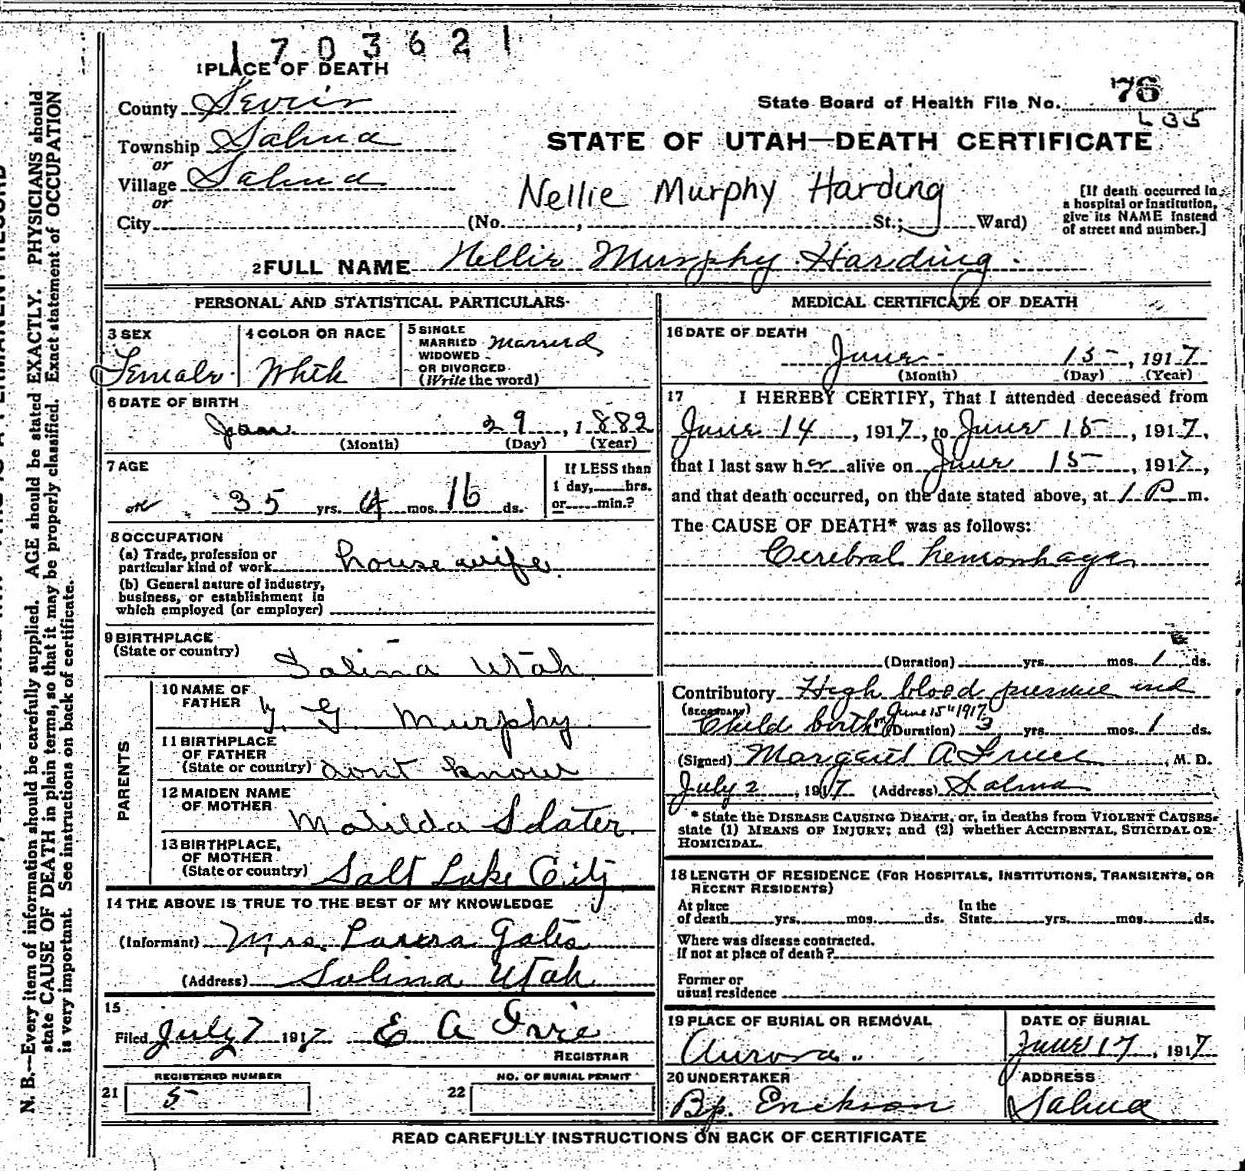 1703621
1 PLACE OF DEATH
County Sevier
State Board of Health File No. 76
L35
Township Salina
STATE OF UTAH—DEATH CERTIFICATE
or
Village Salina
or
Nellie Murphy Harding
City (No. , St.; Ward)
[If death occurred in
a hospital or institution,
give its NAME instead
of street and number.]
2 FULL NAME Nellie Murphy Harding.
PERSONAL AND STATISTICAL PARTICULARS
3 SEX
Female
4 COLOR OR RACE
White
5 SINGLE
MARRIED
WIDOWED
OR DIVORCED
(Write the word)
Married
6 DATE OF BIRTH
Jan. 29, 1882
(Month) (Day) (Year)
7 AGE
35 yrs. 4 mos. 16 ds.
If LESS than
1 day, hrs.
or min.?
8 OCCUPATION
(a) Trade, profession or
particular kind of work housewife.
(b) General nature of industry,
business, or establishment in
which employed (or employer)
9 BIRTHPLACE
(State or country) Salina Utah.
PARENTS
10 NAME OF
FATHER G. Murphy.
11 BIRTHPLACE
OF FATHER
(State or country) dont know
12 MAIDEN NAME
OF MOTHER Matilda Slater.
13 BIRTHPLACE,
OF MOTHER
(State or country) Salt Lake City
14 THE ABOVE IS TRUE TO THE BEST OF MY KNOWLEDGE
(Informant) Mrs. Gates
(Address) Salina Utah
15
Filed July 7 1917 E A
REGISTRAR
REGISTERED NUMBER
21 5
NO. OF BURIAL PERMIT
22
MEDICAL CERTIFICATE OF DEATH
16 DATE OF DEATH
June 15, 1917
(Month) (Day) (Year)
17 I HEREBY CERTIFY, That I attended deceased from
June 14, 1917, to June 15, 1917,
that I last saw her alive on June 15, 1917,
and that death occurred, on the date stated above, at 1 P m.
The CAUSE OF DEATH* was as follows:
Cerebral hemorrhage
(Duration) yrs. mos. 1 ds.
Contributory High blood pressure and
(SECONDARY) Child birth on June 15" 1917
(Duration) 3 yrs. mos. 1 ds.
(Signed) Margaret A , M. D.
July 2, 1917 (Address) Salina
* State the DISEASE CAUSING DEATH, or, in deaths from VIOLENT CAUSES,
state (1) MEANS OF INJURY; and (2) whether ACCIDENTAL, SUICIDAL OR
HOMICIDAL.
18 LENGTH OF RESIDENCE (FOR HOSPITALS, INSTITUTIONS, TRANSIENTS, OR
RECENT RESIDENTS)
At place
of death yrs. mos. ds.
In the
State yrs. mos. ds.
Where was disease contracted,
If not at place of death?
Former or
usual residence
19 PLACE OF BURIAL OR REMOVAL
Aurora.
DATE OF BURIAL
June 17, 1917
20 UNDERTAKER
Bp. Erickson
ADDRESS
Salina
READ CAREFULLY INSTRUCTIONS ON BACK OF CERTIFICATE
N. B.—Every item of information should be carefully supplied. AGE should be stated EXACTLY. PHYSICIANS should
state CAUSE OF DEATH in plain terms, so that it may be properly classified. Exact statement of OCCUPATION
is very important. See instructions on back of certificate.